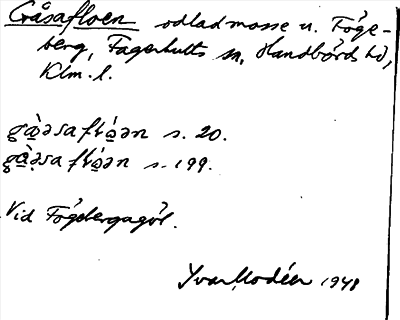 Gåsafloen odlad mosse u. Föge-
berg, Fagerhults sn, Handbörds hd,
Klm. l.
gὰːsaflóən s. 20.
gὰːsaflóən s. 199.
Vid Fögebergagöl.
Yvar Modéer 1948